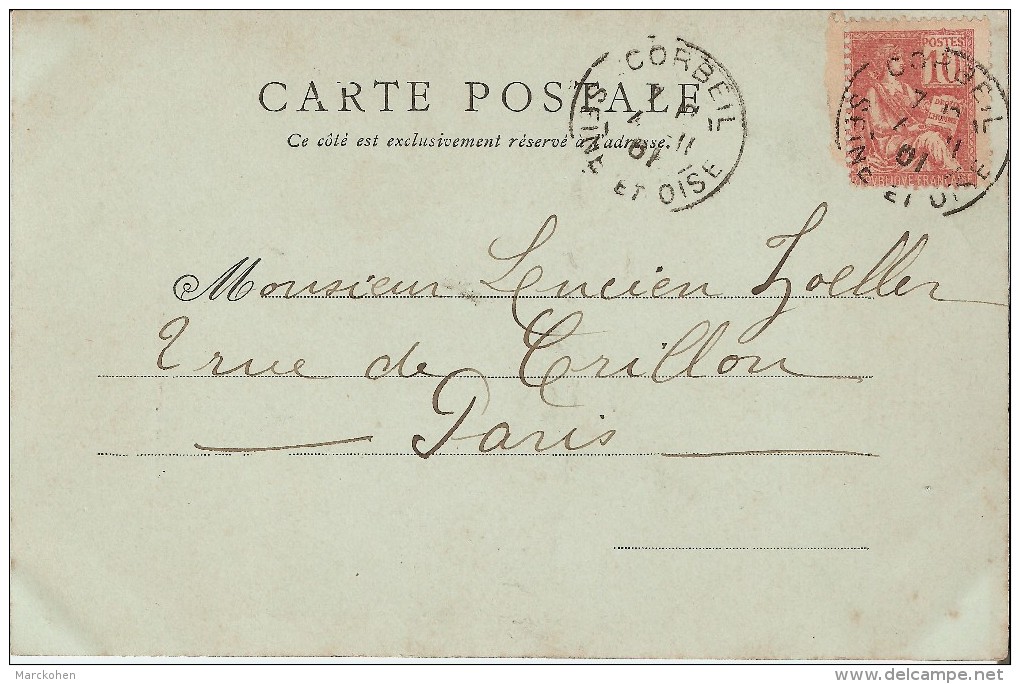 CARTE POSTALE
Ce côté est exclusivement réservé à l'adresse.
CORBEIL
SEINE ET OISE
POSTES
10
RÉPUBLIQUE FRANÇAISE
CORBEIL
SEINE ET OISE
Monsieur Lucien Zoeller
2 rue de Crillon
Paris
Marckohen
delcampe.net